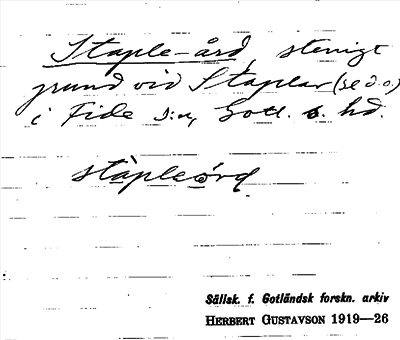 Staple-ård, stenigt
grund vid Staplar (se d.o.)
i Fide s:n, Gotl. s. hd.
stàpleǫrd
Sällsk. f. Gotländsk forskn. arkiv
HERBERT GUSTAVSON 1919—26